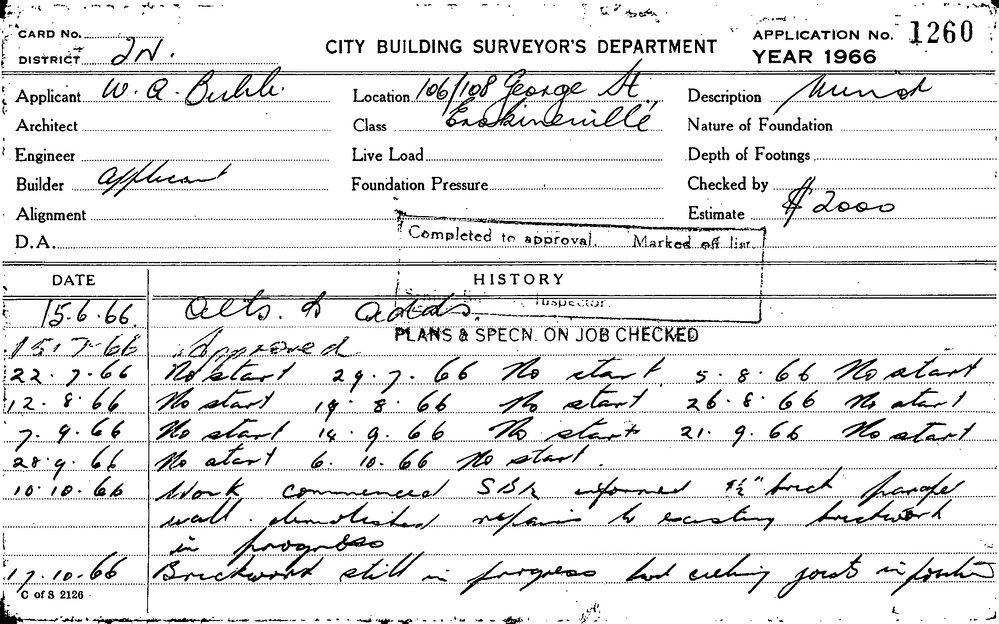 CARD No.
DISTRICT 2N.
CITY BUILDING SURVEYOR'S DEPARTMENT
APPLICATION No. 1260
YEAR 1966
Applicant W. A. Location 106/108 George St, Description
Architect Class Erskineville Nature of Foundation
Engineer Live Load Depth of Footings
Builder applicant Foundation Pressure Checked by
Alignment Estimate $2000
D.A.
Completed to approval. Marked off list.
Inspector.
DATE HISTORY
15.6.66. Alts. & adds.
PLANS & SPECN. ON JOB CHECKED
15.7.66 Approved
22.7.66 No start 29.7.66 No start 5.8.66 No start
12.8.66 No start 19.8.66 No start 26.8.66 No start
7.9.66 No start 14.9.66 No start 21.9.66 No start
28.9.66 No start 6.10.66 No start.
10.10.66 Work commenced informed brick parapet
wall demolished repairs to existing brickwork
in progress
17.10.66 Brickwork still in progress ceiling joists in position
C of S 2126